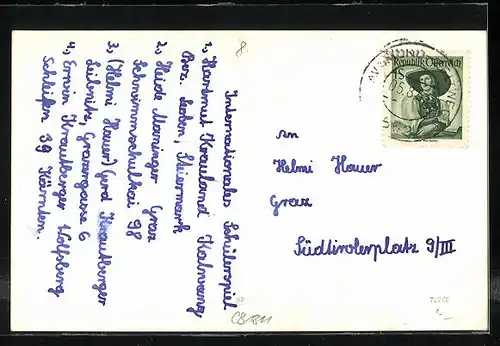 8.
Internationales Schülerspiel
1, Hartmut Krauland Kalwang
Bez. Leoben, Steiermark
2, Heide Maninger Graz
Schwimmschulkai 98
3, (Helmi Hauer) Gerd Krautberger
Leibnitz, Grazergasse 6
4, Erwin Krautberger Wolfsberg
Schleifen 39 Kärnten.
Republik Österreich
1S
An
Helmi Hauer
Graz
Südtirolerplatz 9/III